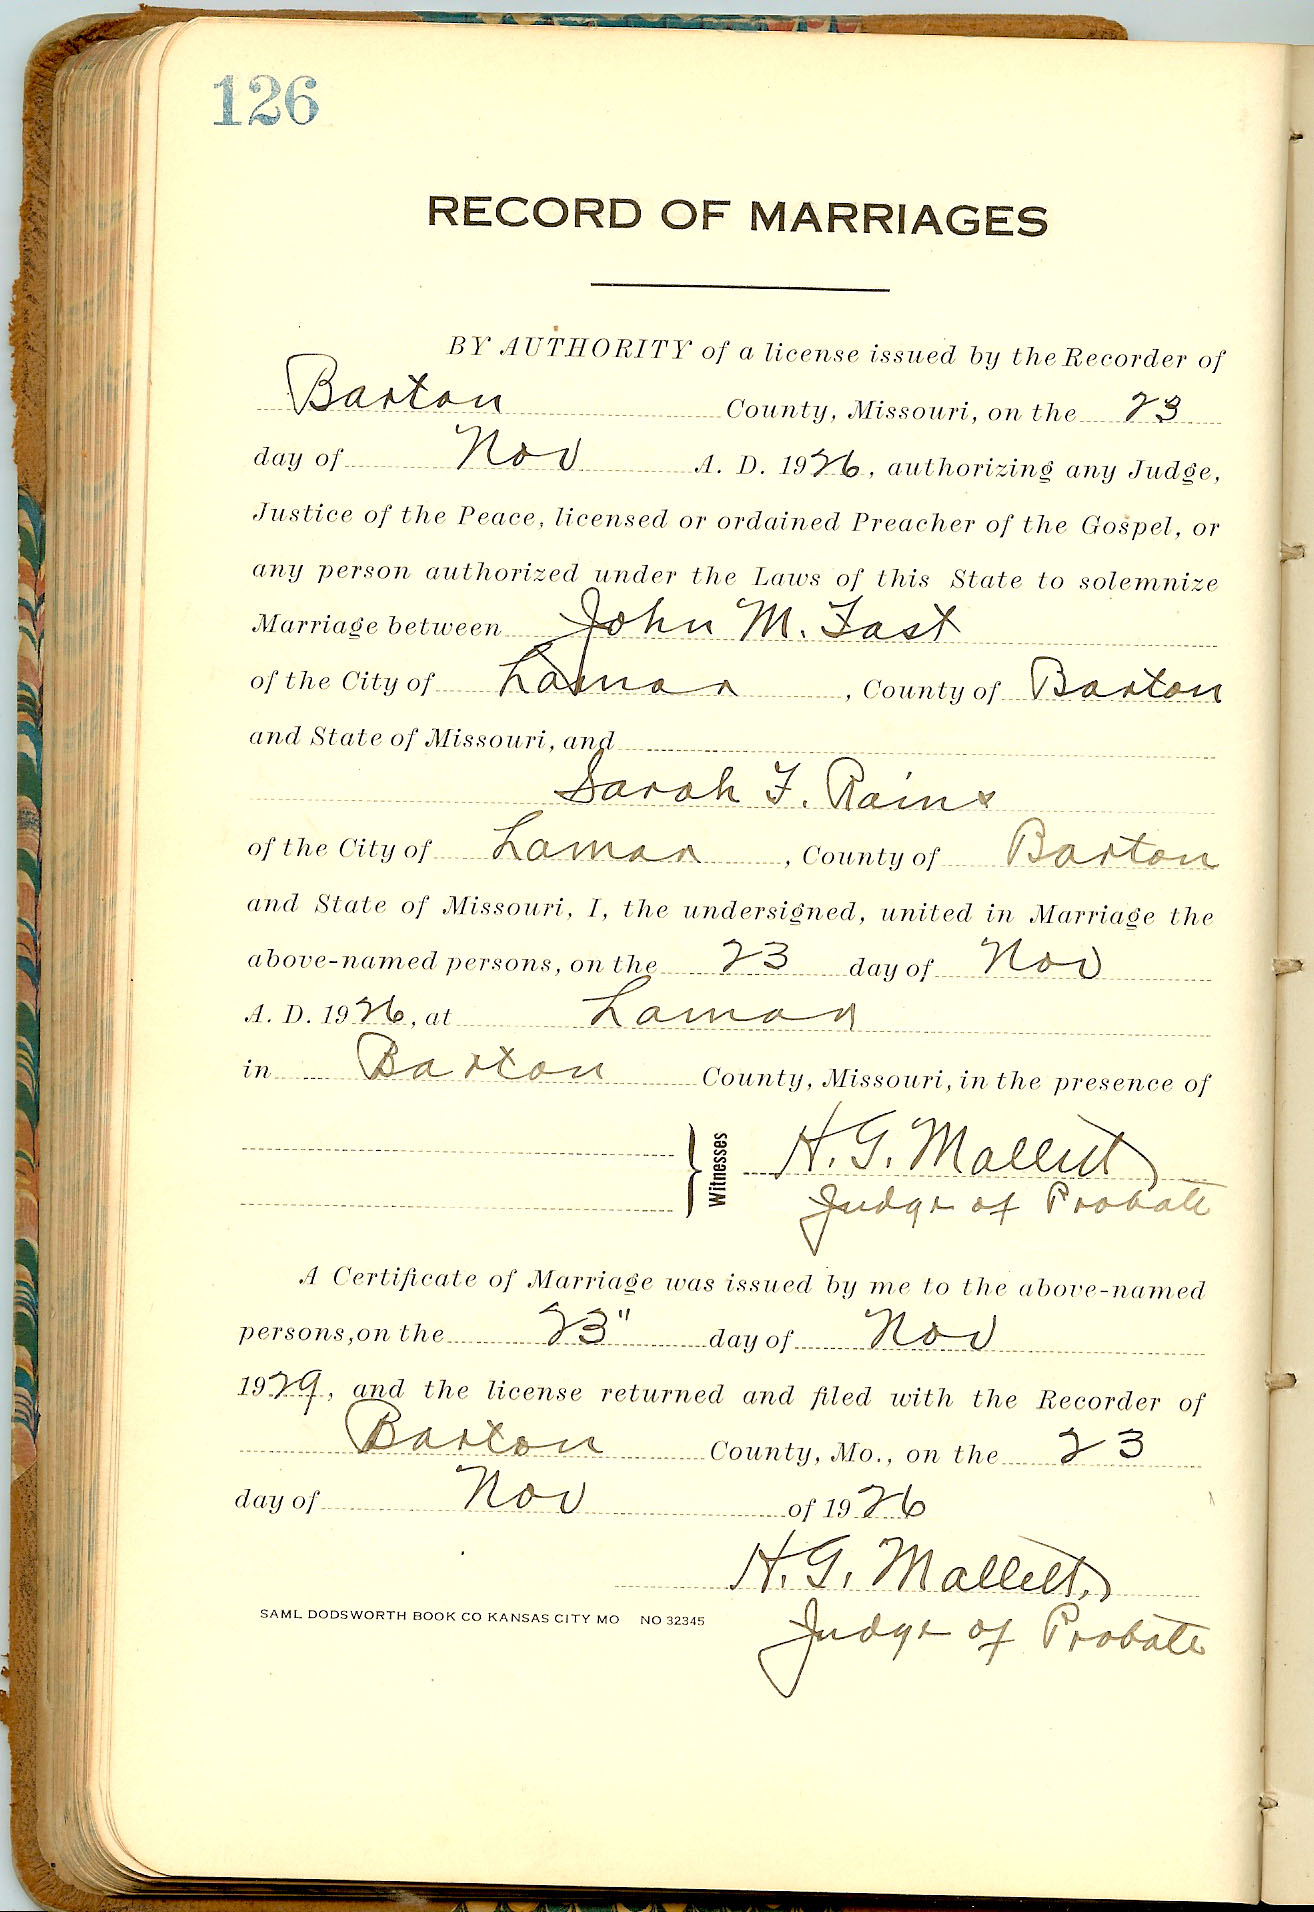 126
RECORD OF MARRIAGES
BY AUTHORITY of a license issued by the Recorder of
Barton County, Missouri, on the 23
day of Nov A. D. 1926, authorizing any Judge,
Justice of the Peace, licensed or ordained Preacher of the Gospel, or
any person authorized under the Laws of this State to solemnize
Marriage between John M. Fast
of the City of Lamar, County of Barton
and State of Missouri, and
Sarah F. Rains
of the City of Lamar, County of Barton
and State of Missouri, I, the undersigned, united in Marriage the
above-named persons, on the 23 day of Nov
A. D. 1926, at Lamar
in Barton County, Missouri, in the presence of
Witnesses H. G. Mallett
Judge of Probate
A Certificate of Marriage was issued by me to the above-named
persons, on the 23" day of Nov
1929, and the license returned and filed with the Recorder of
Barton County, Mo., on the 23
day of Nov of 1926
H. G. Mallett,
SAML DODSWORTH BOOK CO KANSAS CITY MO NO 32345
Judge of Probate